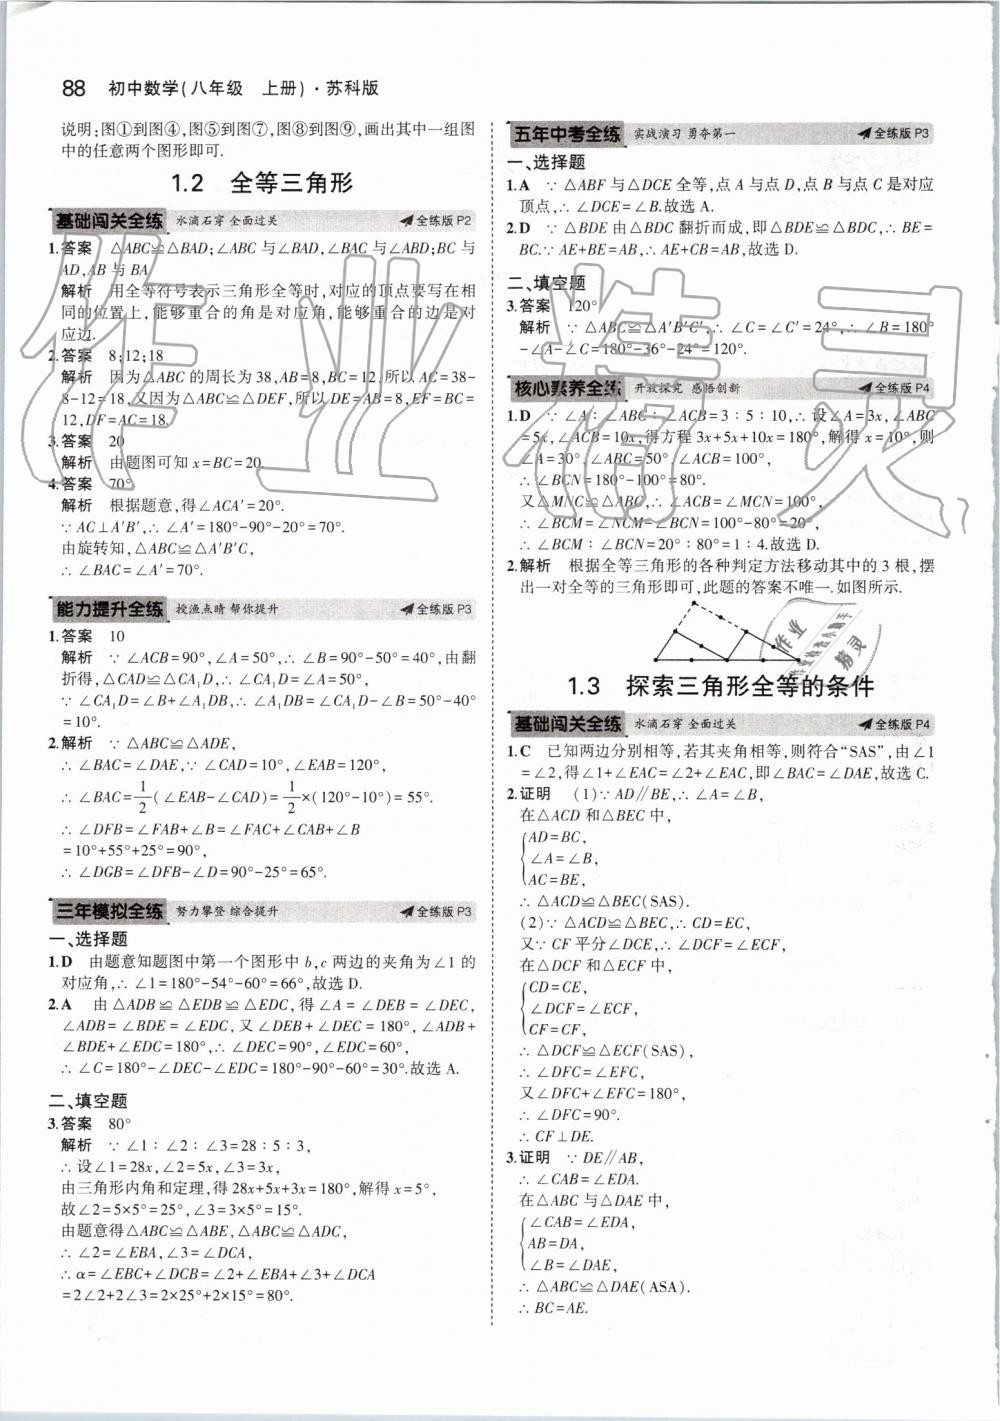 88 初中数学(八年级 上册)·苏科版
说明:图①到图④,图⑤到图⑦,图⑧到图⑨,画出其中一组图
中的任意两个图形即可.
1.2 全等三角形
基础闯关全练 水滴石穿 全面过关 全练版P2
1.答案 △ABC≌△BAD;∠ABC与∠BAD,∠BAC与∠ABD;BC与
AD,AB与BA
解析 用全等符号表示三角形全等时,对应的顶点要写在相
同的位置上,能够重合的角是对应角,能够重合的边是对
应边.
2.答案 8;12;18
解析 因为△ABC的周长为38,AB=8,BC=12,所以AC=38-
8-12=18,又因为△ABC≌△DEF,所以DE=AB=8,EF=BC=
12,DF=AC=18.
3.答案 20
解析 由题图可知x=BC=20.
4.答案 70°
解析 根据题意,得∠ACA′=20°.
∵AC⊥A′B′,∴∠A′=180°-90°-20°=70°.
由旋转知,△ABC≌△A′B′C,
∴∠BAC=∠A′=70°.
能力提升全练 授渔点睛 帮你提升 全练版P3
1.答案 10
解析 ∵∠ACB=90°,∠A=50°,∴∠B=90°-50°=40°,由翻
折得,△CAD≌△CA₁D,∴∠CA₁D=∠A=50°,
∵∠CA₁D=∠B+∠A₁DB,∴∠A₁DB=∠CA₁D-∠B=50°-40°
=10°.
2.解析 ∵△ABC≌△ADE,
∴∠BAC=∠DAE,∵∠CAD=10°,∠EAB=120°,
∴∠BAC=1/2(∠EAB-∠CAD)=1/2×(120°-10°)=55°.
∴∠DFB=∠FAB+∠B=∠FAC+∠CAB+∠B
=10°+55°+25°=90°,
∴∠DGB=∠DFB-∠D=90°-25°=65°.
三年模拟全练 努力攀登 综合提升 全练版P3
一、选择题
1.D 由题意知题图中第一个图形中b,c两边的夹角为∠1的
对应角,∴∠1=180°-54°-60°=66°,故选D.
2.A 由△ADB≌△EDB≌△EDC,得∠A=∠DEB=∠DEC,
∠ADB=∠BDE=∠EDC,又∠DEB+∠DEC=180°,∠ADB+
∠BDE+∠EDC=180°,∴∠DEC=90°,∠EDC=60°,
∴∠C=180°-∠DEC-∠EDC=180°-90°-60°=30°.故选A.
二、填空题
3.答案 80°
解析 ∵∠1∶∠2∶∠3=28∶5∶3,
∴设∠1=28x,∠2=5x,∠3=3x,
由三角形内角和定理,得28x+5x+3x=180°,解得x=5°,
故∠2=5×5°=25°,∠3=3×5°=15°.
由题意得△ABC≌△ABE,△ABC≌△ADC,
∴∠2=∠EBA,∠3=∠DCA,
∴α=∠EBC+∠DCB=∠2+∠EBA+∠3+∠DCA
=2∠2+2∠3=2×25°+2×15°=80°.
五年中考全练 实战演习 勇夺第一 全练版P3
一、选择题
1.A ∵△ABF与△DCE全等,点A与点D,点B与点C是对应
顶点,∴∠DCE=∠B.故选A.
2.D ∵△BDE由△BDC翻折而成,即△BDE≌△BDC,∴BE=
BC.∵AE+BE=AB,∴AE+CB=AB,故选D.
二、填空题
3.答案 120°
解析 ∵△ABC≌△A′B′C′,∴∠C=∠C′=24°,∴∠B=180°
-∠A-∠C=180°-36°-24°=120°.
核心素养全练 开放探究 感悟创新 全练版P4
1.D ∵∠A∶∠ABC∶∠ACB=3∶5∶10,∴设∠A=3x,∠ABC
=5x,∠ACB=10x,得方程3x+5x+10x=180°,解得x=10°,则
∠A=30°,∠ABC=50°,∠ACB=100°,
∴∠BCN=180°-100°=80°.
又△MNC≌△ABC,∴∠ACB=∠MCN=100°,
∴∠BCM=∠NCM-∠BCN=100°-80°=20°,
∴∠BCM∶∠BCN=20°∶80°=1∶4.故选D.
2.解析 根据全等三角形的各种判定方法移动其中的3根,摆
出一对全等的三角形即可,此题的答案不唯一.如图所示.
1.3 探索三角形全等的条件
基础闯关全练 水滴石穿 全面过关 全练版P4
1.C 已知两边分别相等,若其夹角相等,则符合“SAS”,由∠1
=∠2,得∠1+∠EAC=∠2+∠EAC,即∠BAC=∠DAE,故选C.
2.证明 (1)∵AD∥BE,∴∠A=∠B,
在△ACD和△BEC中,
AD=BC,
∠A=∠B,
AC=BE,
∴△ACD≌△BEC(SAS).
(2)∵△ACD≌△BEC,∴CD=EC,
又∵CF平分∠DCE,∴∠DCF=∠ECF,
在△DCF和△ECF中,
CD=CE,
∠DCF=∠ECF,
CF=CF,
∴△DCF≌△ECF(SAS),
∴∠DFC=∠EFC,
又∠DFC+∠EFC=180°,
∴∠DFC=90°.
∴CF⊥DE.
3.证明 ∵DE∥AB,
∴∠CAB=∠EDA.
在△ABC与△DAE中,
∠CAB=∠EDA,
AB=DA,
∠B=∠DAE,
∴△ABC≌△DAE(ASA).
∴BC=AE.
作业精灵